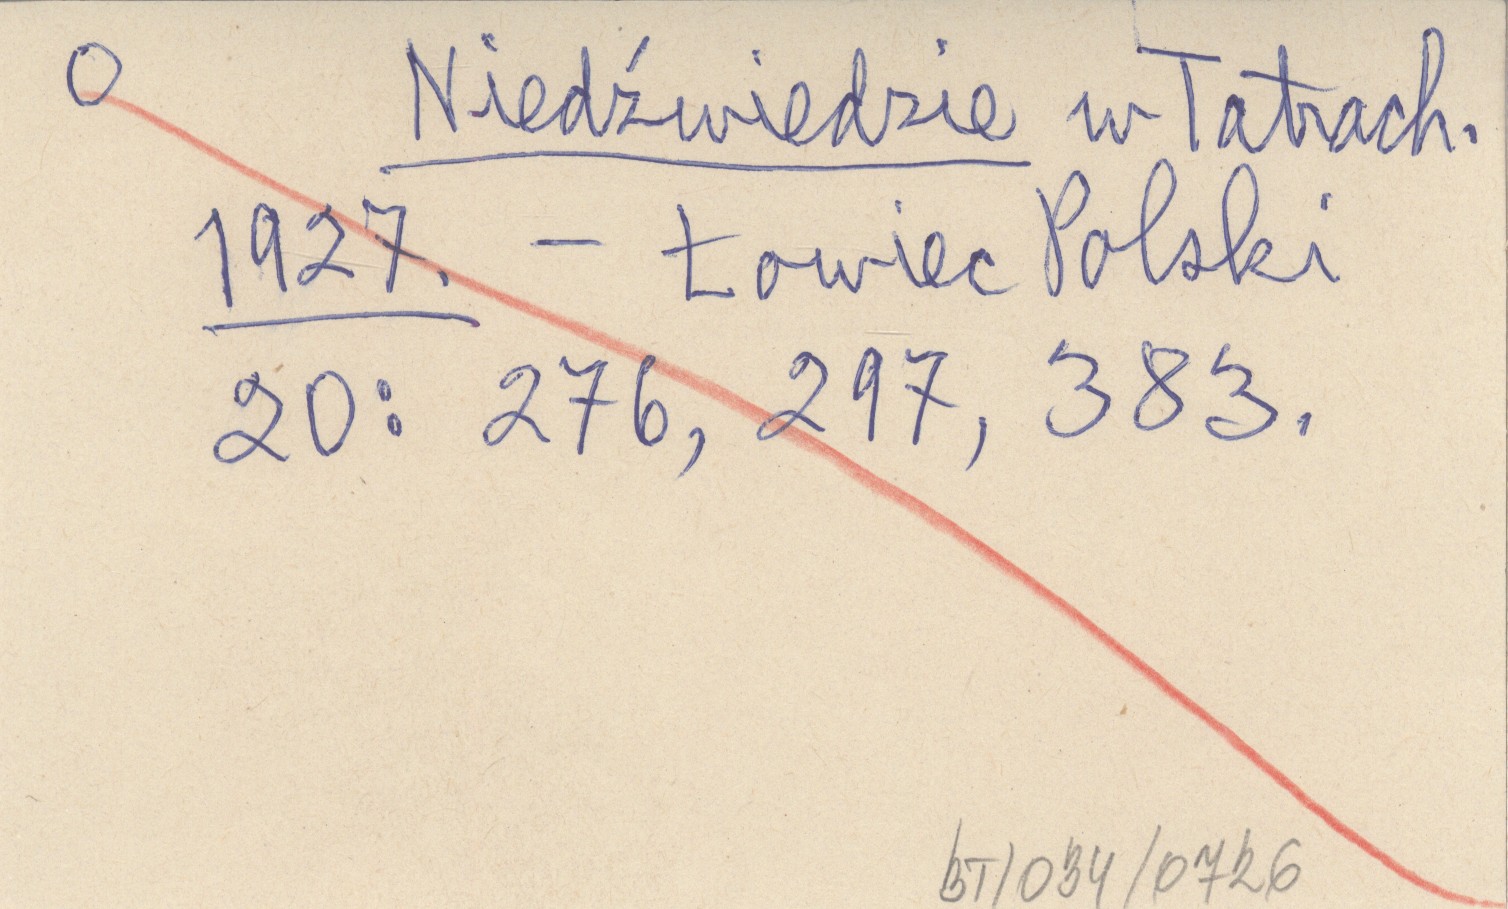 O Niedźwiedzie w Tatrach.
1927. — Łowiec Polski
20: 276, 297, 383.
BT/034/0726